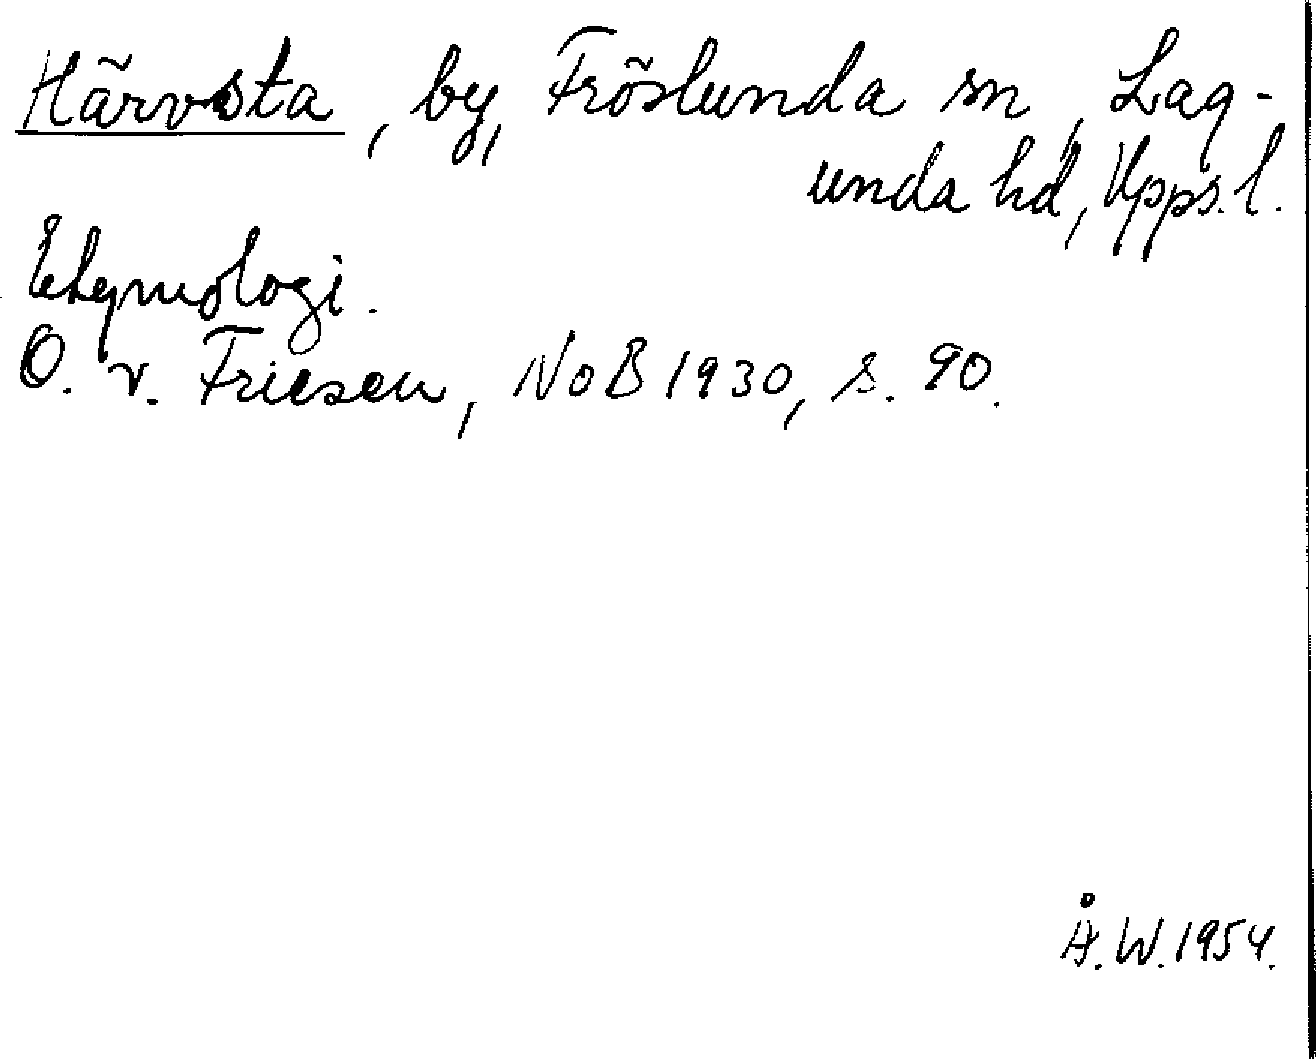 Härvsta, by, Fröslunda sn, Lag-
unda hd, Upps. l.
Etymologi.
O. v. Friesen, NoB 1930, s. 90.
Å. W. 1954.